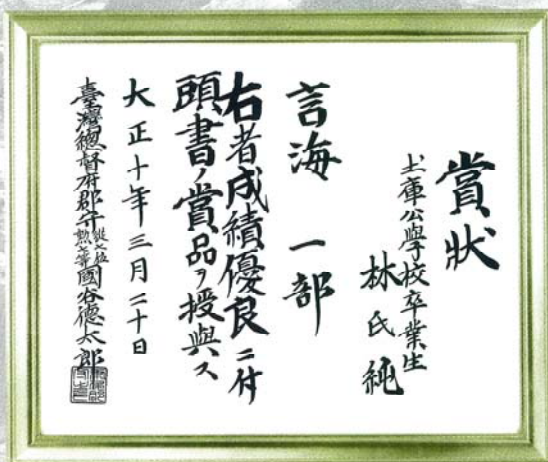 賞狀
土庫公學校卒業生
林氏純
言海 一部
右者成績優良ニ付
頭書ノ賞品ヲ授與ス
大正十年三月二十日
臺灣總督府郡守從七位勲七等國谷德太郎